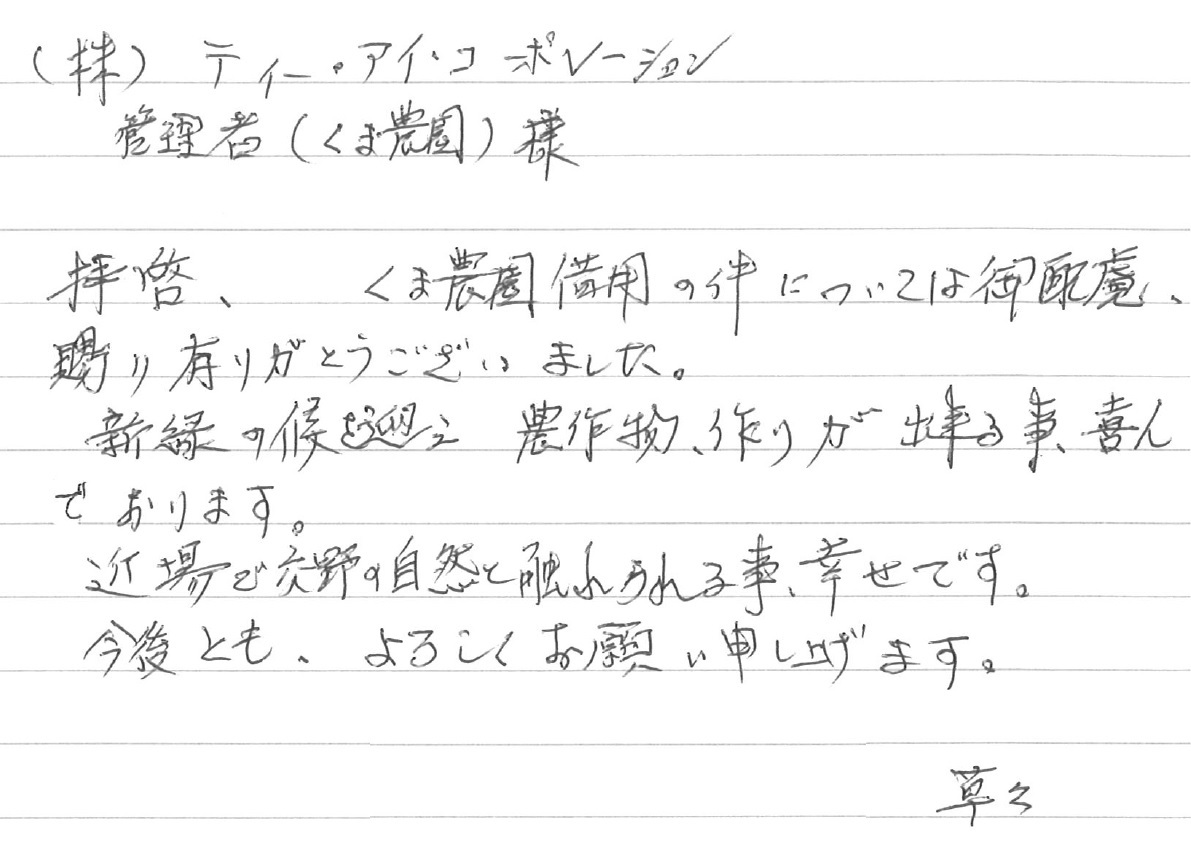 (株) ティー・アイ・コーポレーション
管理者(くま農園)様
拝啓、 くま農園借用の件については御配慮、
賜り有りがとうございました。
新緑の候を迎え 農作物、作りが出来る事、喜ん
でおります。
近場で交野の自然と触れられる事、幸せです。
今後とも、よろしくお願い申し上げます。
草々